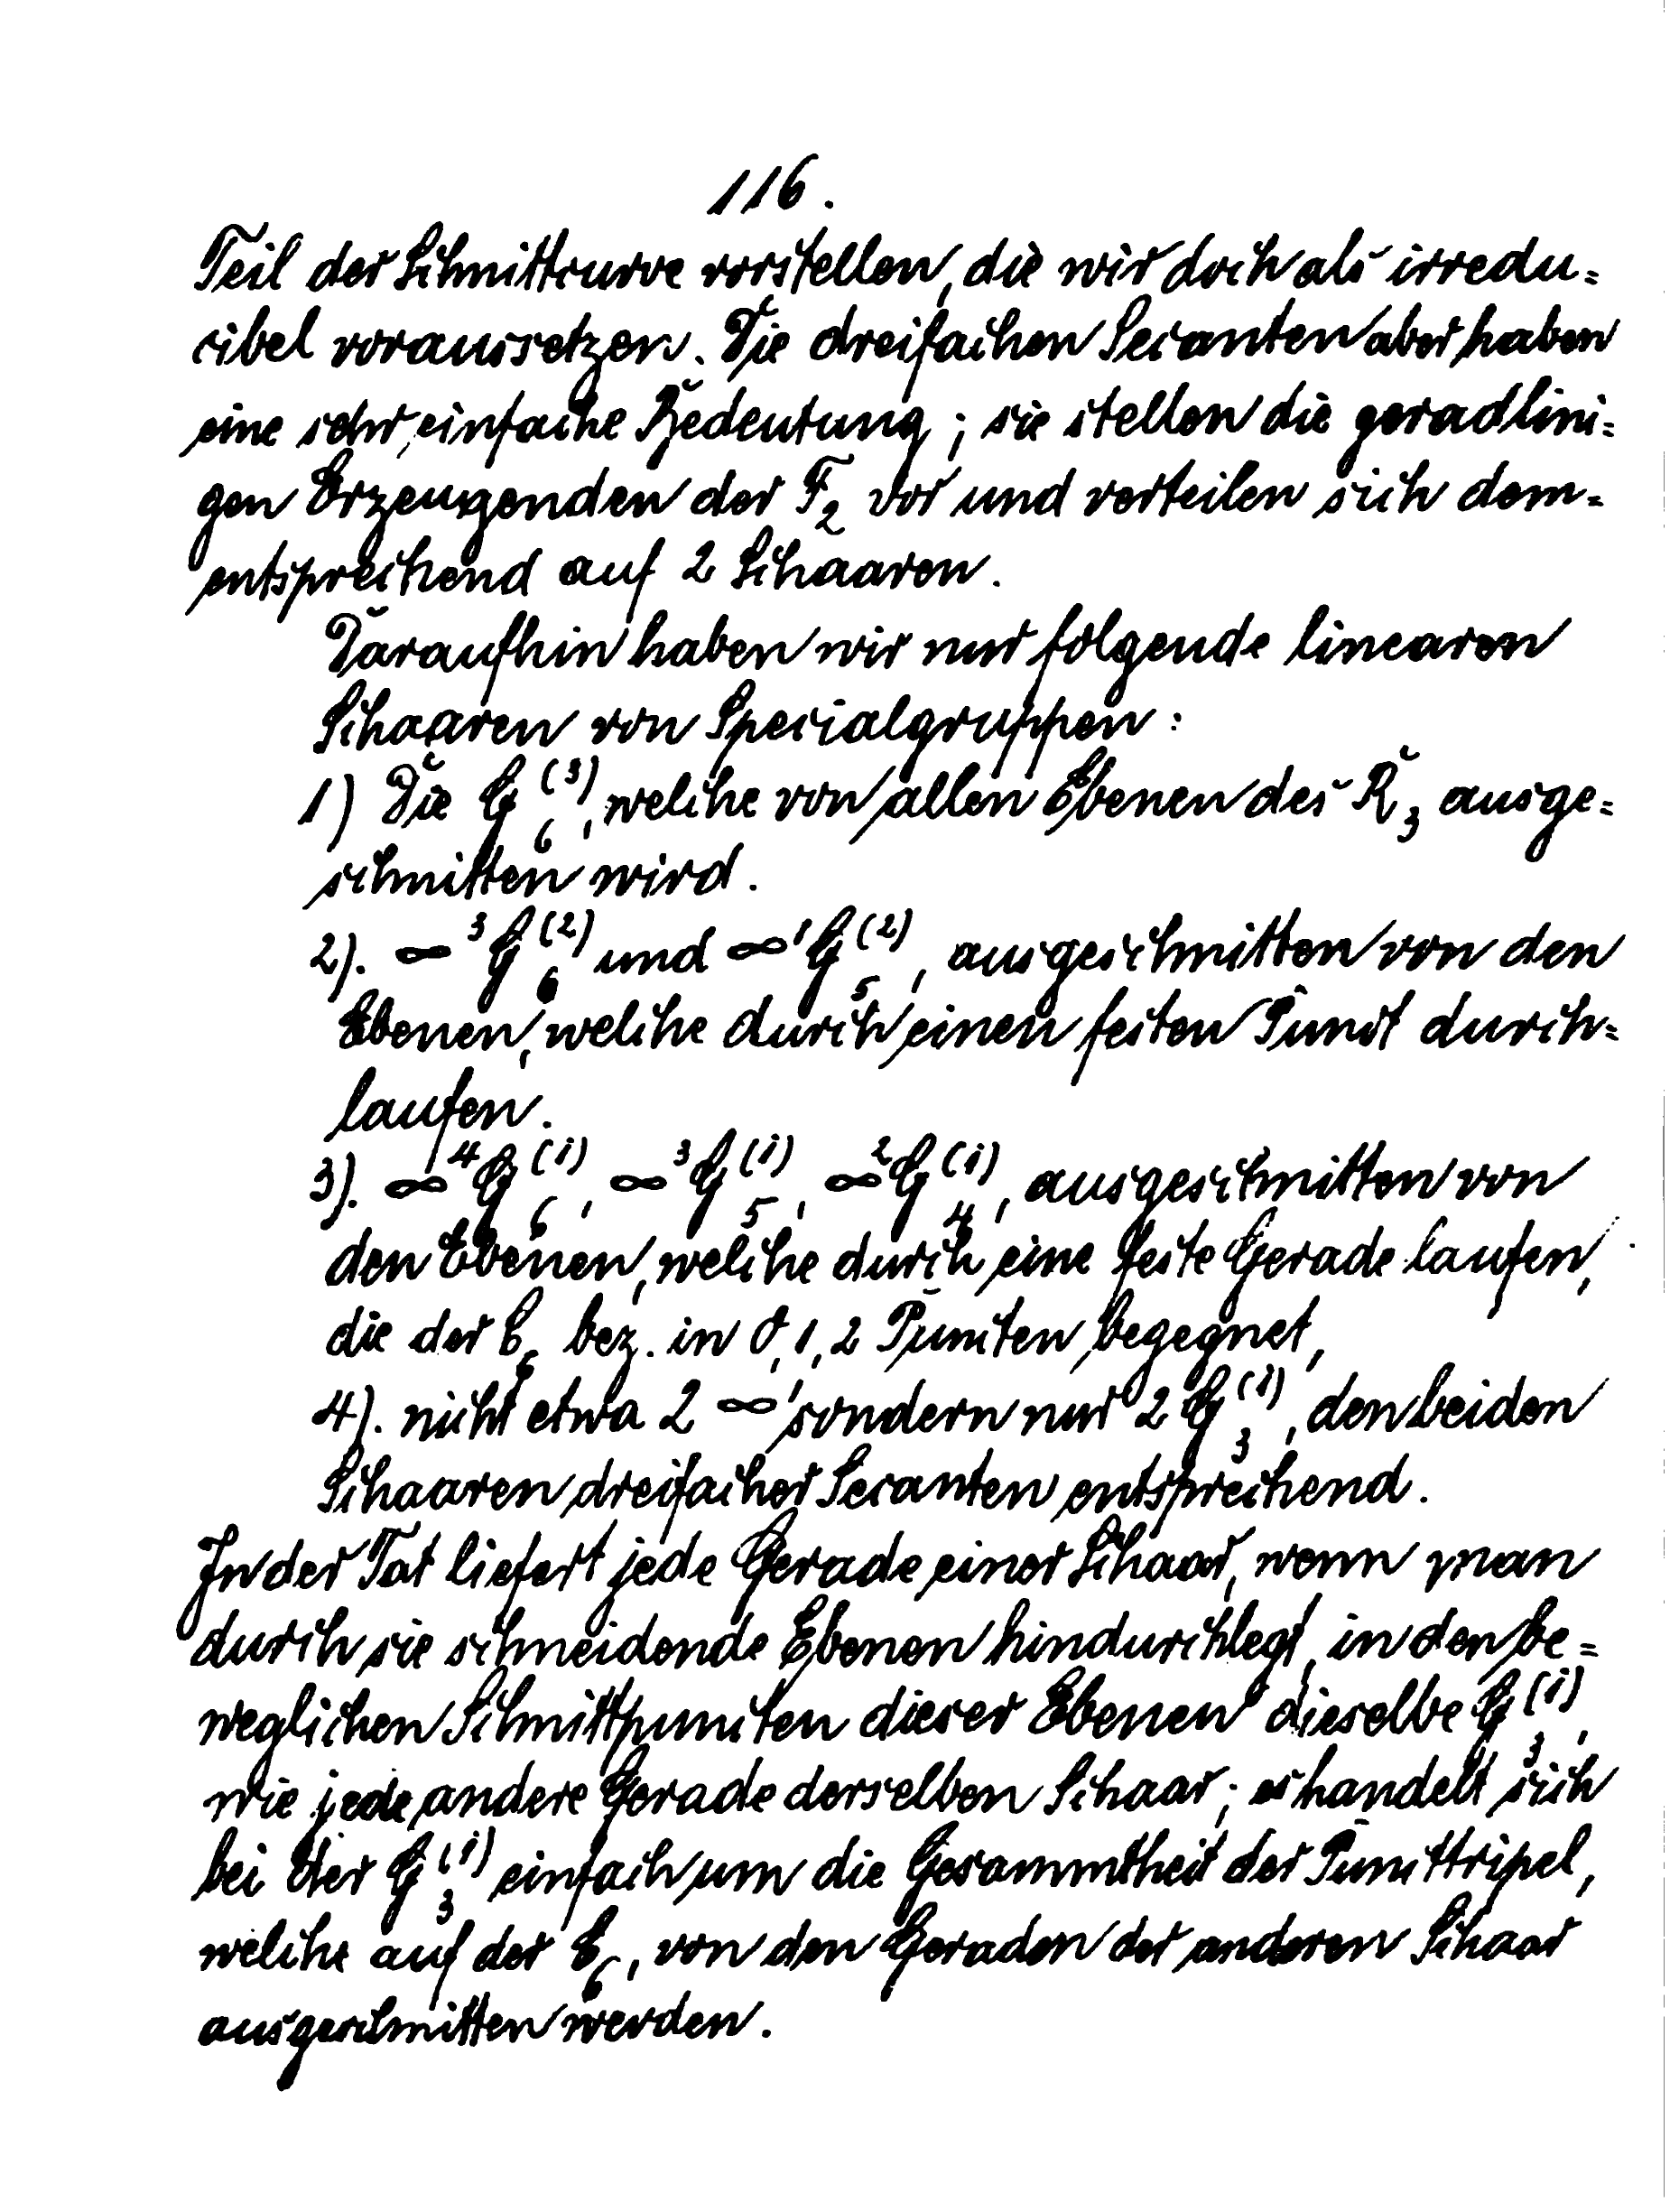 116.
Teil der Schnittcurve vorstellen, die wir doch als irredu=
cibel voraussetzen. Die dreifachen Secanten aber haben
eine sehr einfache Bedeutung; sie stellen die geradlini=
gen Erzeugenden der F₂ vor und verteilen sich dem=
entsprechend auf 2 Schaaren.
Daraufhin haben wir nur folgende linearen
Schaaren von Specialgruppen:
1) Die G₆⁽³⁾, welche von allen Ebenen des R₃ ausge=
schnitten wird.
2). ∞³ G₆⁽²⁾ und ∞¹ G₅⁽²⁾, ausgeschnitten von den
Ebenen, welche durch einen festen Punct durch=
laufen.
3). ∞⁴ G₆⁽¹⁾, ∞³ G₅⁽¹⁾, ∞² G₄⁽¹⁾, ausgeschnitten von
den Ebenen, welche durch eine feste Gerade laufen,
die der C₆ bez. in 0, 1, 2 Puncten begegnet,
4). nicht etwa 2 ∞¹ sondern nur 2 G₃⁽¹⁾, den beiden
Schaaren dreifacher Secanten entsprechend.
In der Tat liefert jede Gerade einer Schaar, wenn man
durch sie schneidende Ebenen hindurchlegt, in den be=
weglichen Schnittpuncten dieser Ebenen dieselbe G₃⁽¹⁾,
wie jede andere Gerade derselben Schaar; es handelt sich
bei der G₃⁽¹⁾ einfach um die Gesammtheit der Puncttripel,
welche auf der C₆, von den Geraden der anderen Schaar
ausgeschnitten werden.